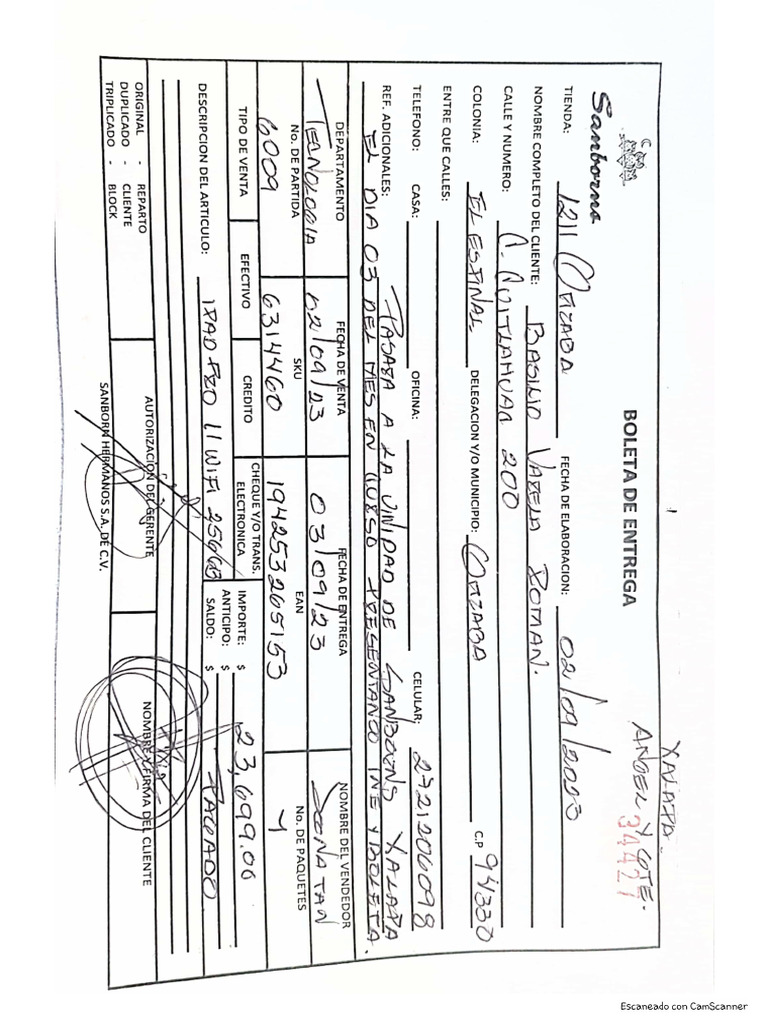 XALAPA.
ANGEL Y OTE.
BOLETA DE ENTREGA
34427
Sanborns
TIENDA: 1211 ORIZABA FECHA DE ELABORACION: 02/09/2023
NOMBRE COMPLETO DEL CLIENTE: BASILIO VARELA ROMAN.
CALLE Y NUMERO: C. CUITLAHUAC 200
COLONIA: EL ESPINAL DELEGACION Y/O MUNICIPIO: ORIZABA C.P 94330
ENTRE QUE CALLES:
TELEFONO: CASA: OFICINA: CELULAR: 2721206098
REF. ADICIONALES: PASARA A LA UNIDAD DE SANBORNS XALAPA
EL DIA 03 DEL MES EN CURSO PRESENTANDO INE Y BOLETA.
DEPARTAMENTO FECHA DE VENTA FECHA DE ENTREGA NOMBRE DEL VENDEDOR
TECNOLOGIA 02/09/23 03/09/23 JONATAN
No. DE PARTIDA SKU EAN No. DE PAQUETES
6009 6314460 194253265153
TIPO DE VENTA EFECTIVO CREDITO CHEQUE Y/O TRANS. ELECTRONICA IMPORTE: $ 23,699.00
ANTICIPO: $
DESCRIPCION DEL ARTICULO: IPAD PRO 11 WIFI 256GB SALDO: $ PAGADO
ORIGINAL - REPARTO
DUPLICADO - CLIENTE
TRIPLICADO - BLOCK
AUTORIZACION DEL GERENTE
NOMBRE Y FIRMA DEL CLIENTE
SANBORN HERMANOS S.A. DE C.V.
Escaneado con CamScanner